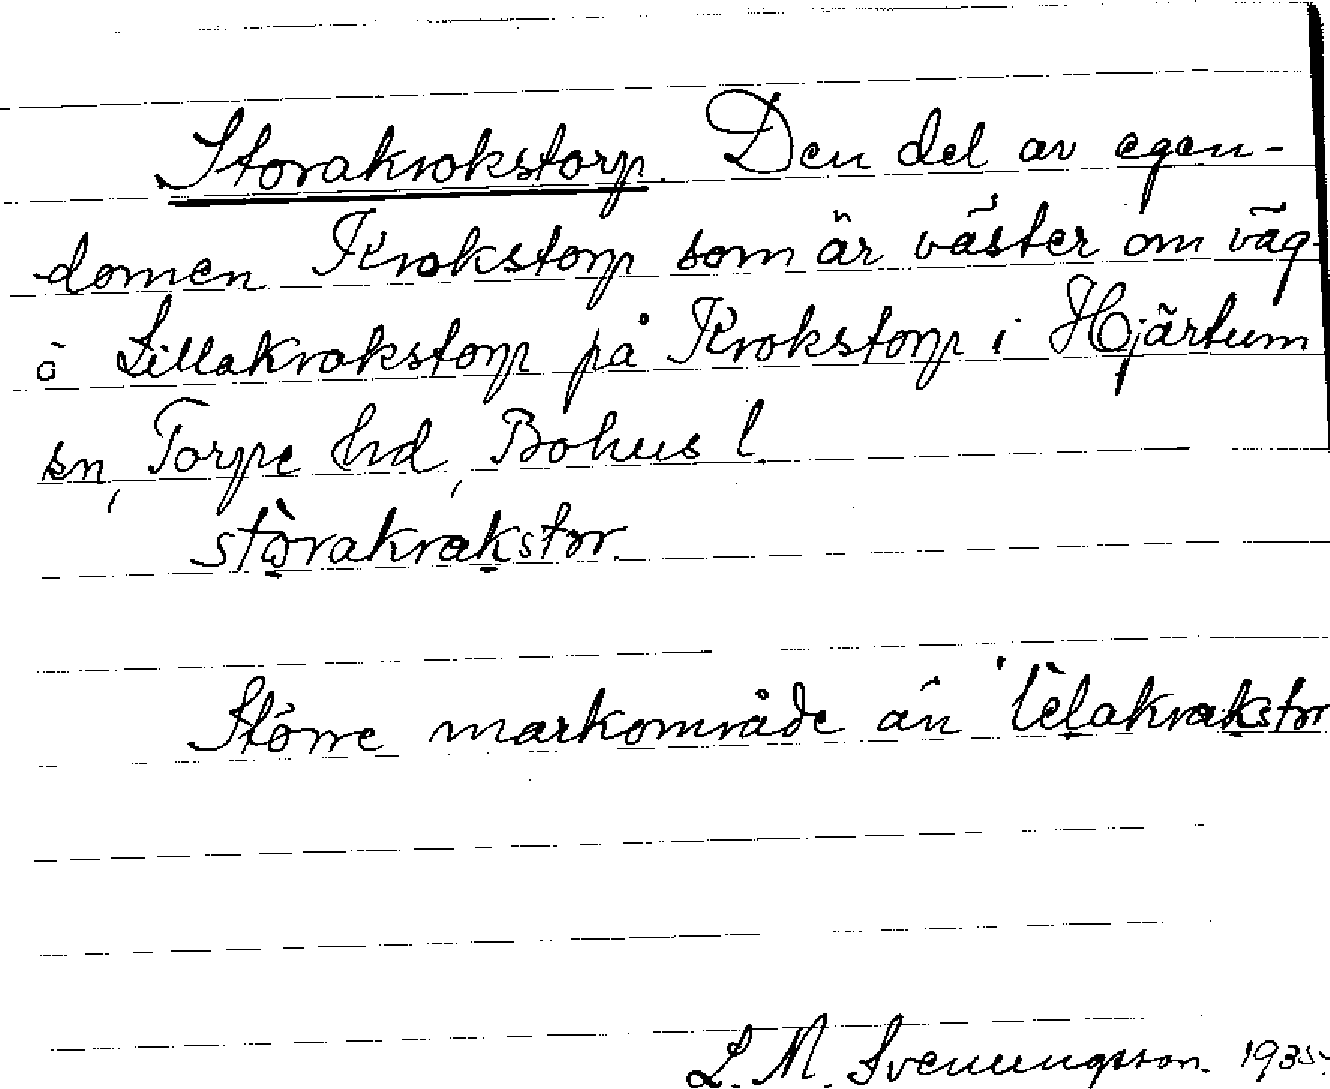 Storakrokstorp. Den del av egen-
domen Krokstorp som är väster om väg
ö Lillakrokstorp på Krokstorp i Hjärtum
sn, Torpe hd, Bohus l.
stòrakrakstor.
Större markområde än lèlakrakstor
L. M. Svenungsson. 1935.